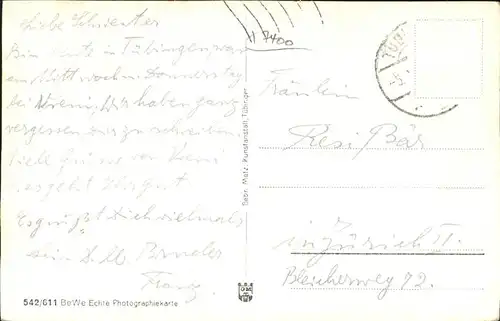 Liebe Schwester
Bin heute in Tübingen, war
am Mittwoch u. Donnerstag
bei Vreni, Wir haben ganz
vergessen dir zu schreiben.
Viele Grüsse von Vreni
es geht Ihr gut
Es grüßt Dich vielmals
dein D. lb. Bruder
Franz
542/611 BeWe Echte Photographiekarte
Gebr. Metz, Kunstanstalt, Tübingen
7400
Fräulein
Resi Bär
in Zürich II.
Bleicherweg 72.